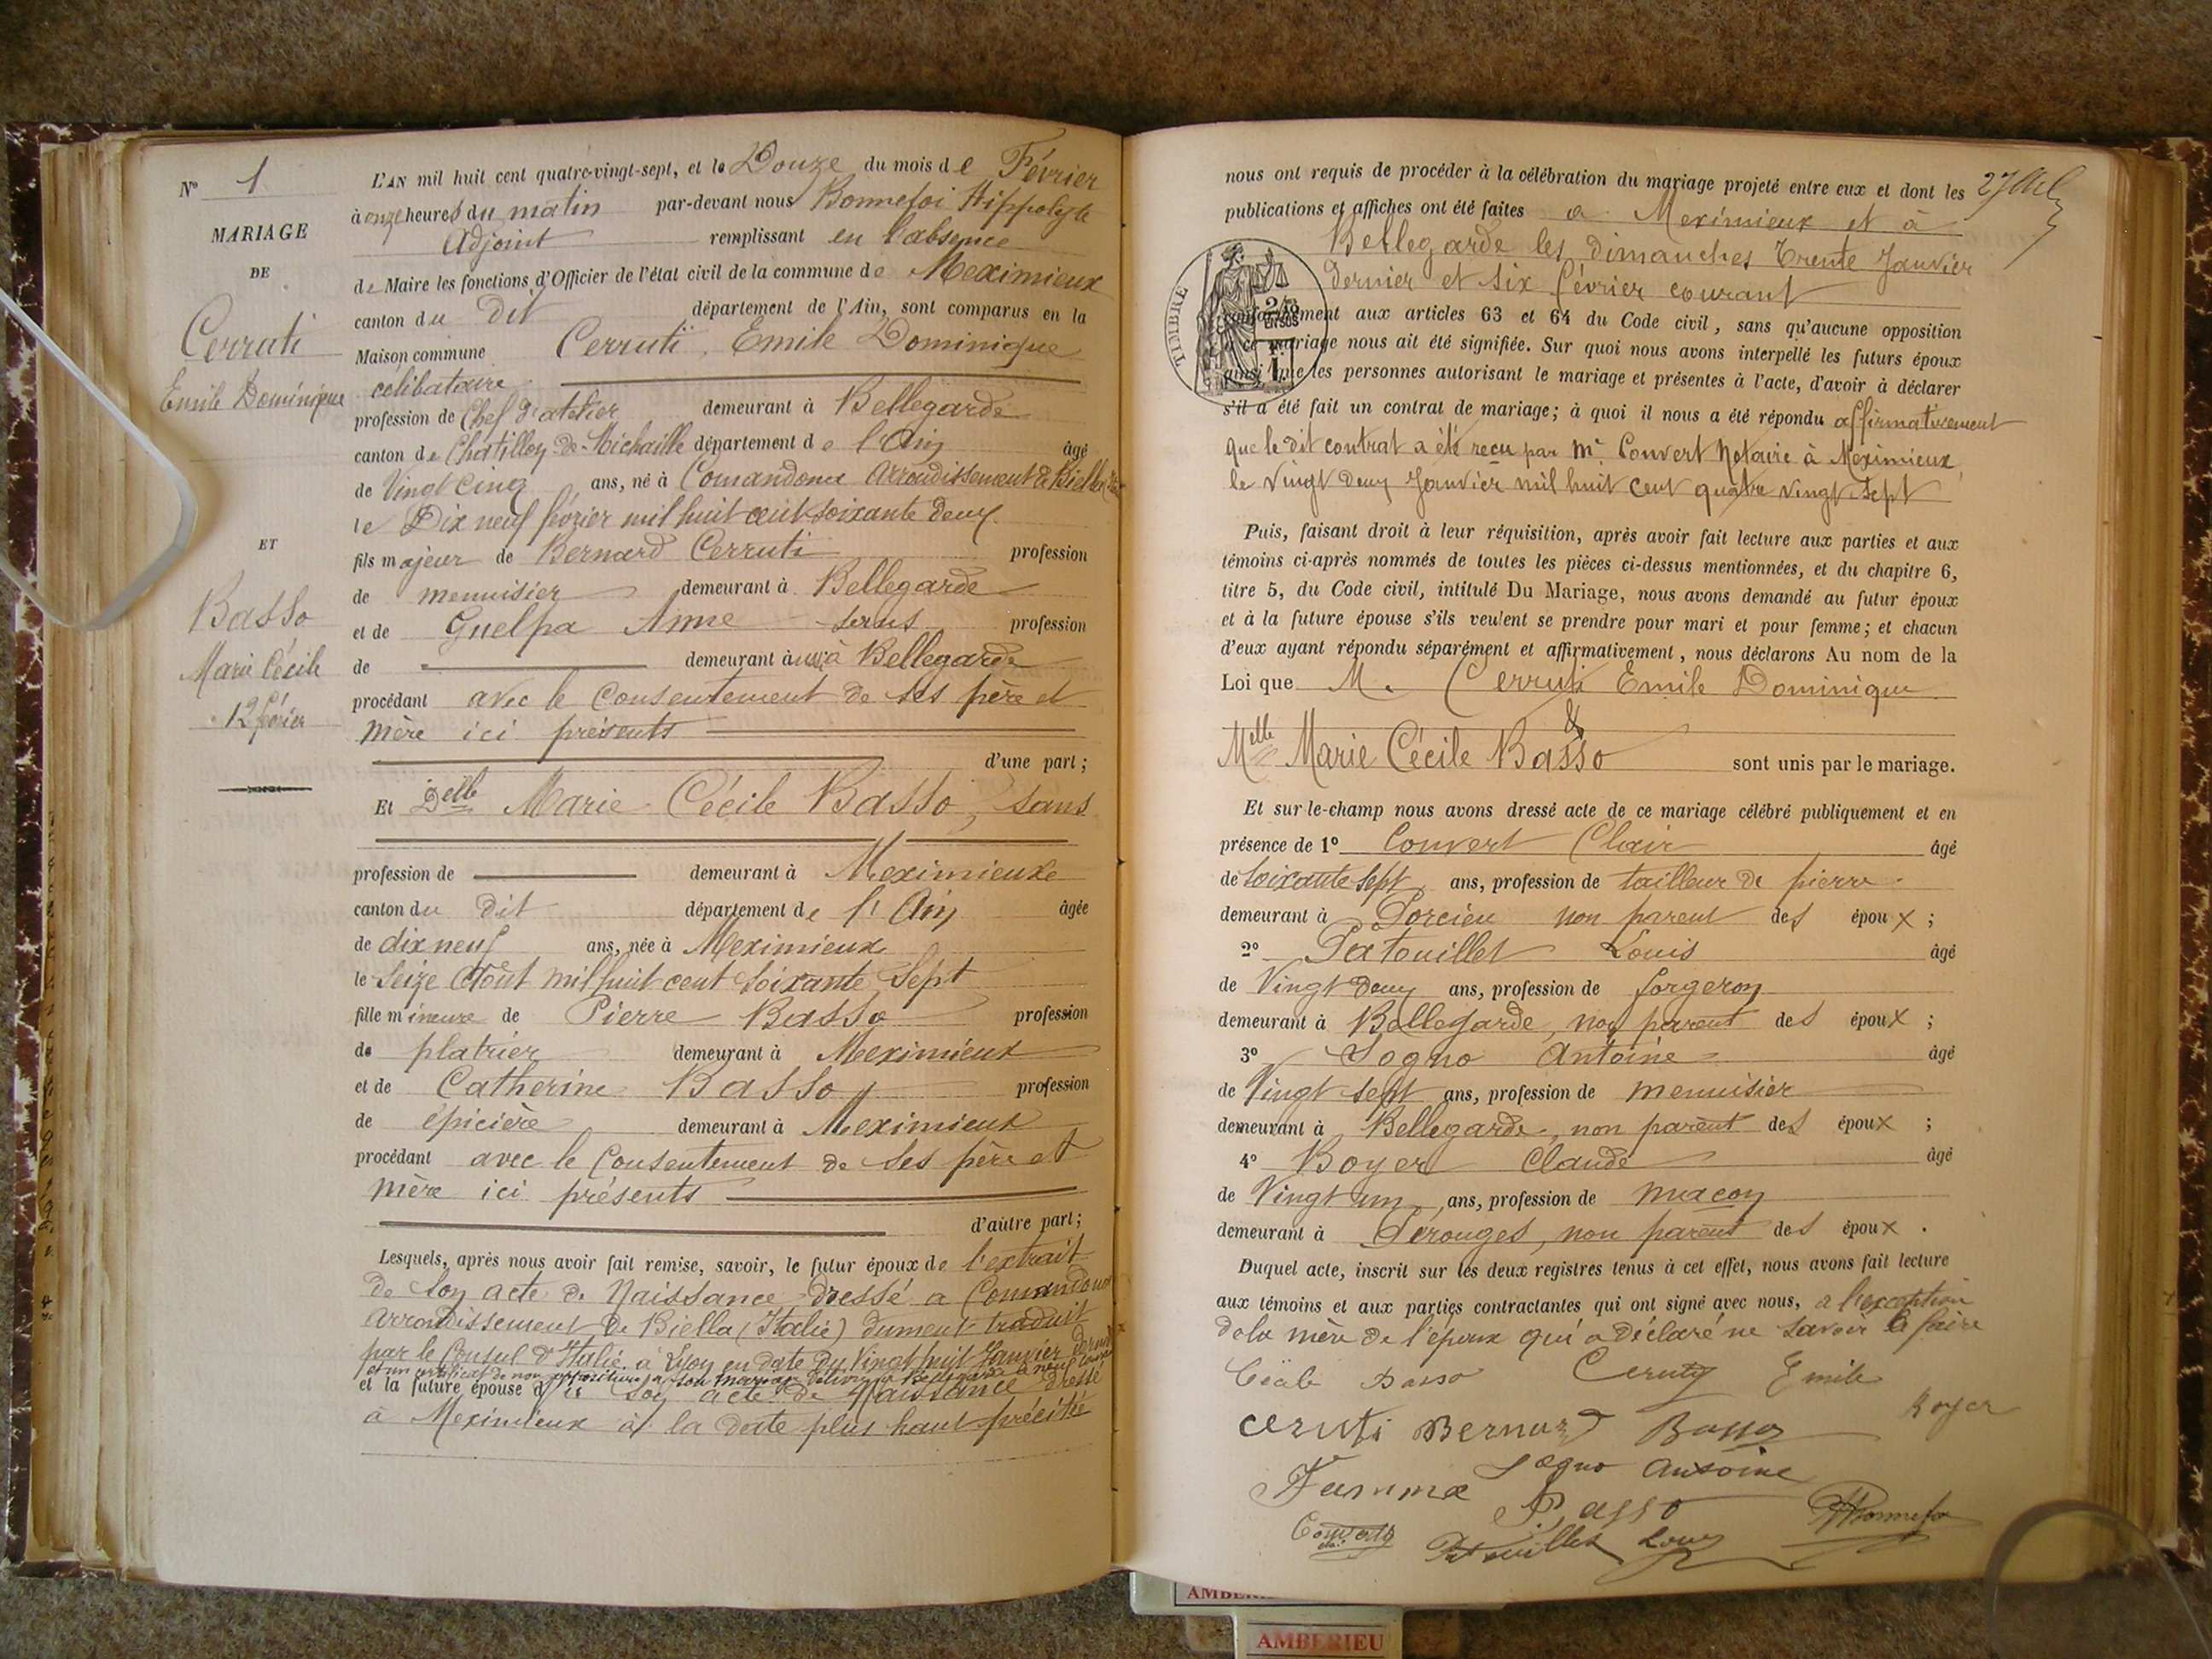 N° 1
MARIAGE
DE
Cerruti
Emile Dominique
ET
Basso
Marie Cécile
12 février
L'AN mil huit cent quatre-vingt-sept, et le Douze du mois de Février
à onze heures du matin par-devant nous Bonnefoi Hippolyte
Adjoint remplissant en l'absence
de Maire les fonctions d'Officier de l'état civil de la commune de Meximieux
canton du dit département de l'Ain, sont comparus en la
Maison commune Cerruti, Emile Dominique
célibataire
profession de Chef d'atelier demeurant à Bellegarde
canton de Chatillon-de-Michaille département de l'Ain âgé
de Vingt cinq ans, né à Comandona arrondissement de Biella
le Dix neuf février mil huit cent soixante deux
fils majeur de Bernard Cerruti profession
de menuisier demeurant à Bellegarde
et de Guelpa Anne sans profession
de demeurant à Bellegarde
procédant avec le Consentement de ses père et
mère ici présents
d'une part;
Et Delle Marie Cécile Basso, sans
profession de demeurant à Meximieux
canton du dit département de l'Ain âgée
de dix neuf ans, née à Meximieux
le Seize Août mil huit cent soixante sept
fille mineure de Pierre Basso profession
de platrier demeurant à Meximieux
et de Catherine Basso profession
de épicière demeurant à Meximieux
procédant avec le Consentement de ses père et
mère ici présents
d'autre part;
Lesquels, après nous avoir fait remise, savoir, le futur époux de l'extrait
de son acte de Naissance dressé a Comandona
arrondissement de Biella (Italie) dument traduit
par le Consul d'Italie à Lyon en date du Vingt huit Janvier dernier
et un certificat de non opposition à son mariage délivré à Bellegarde le neuf
et la future épouse de son acte de Naissance dressé
à Meximieux à la date plus haut précitée
nous ont requis de procéder à la célébration du mariage projeté entre eux et dont les
publications et affiches ont été faites a Meximieux et à
Bellegarde les dimanches trente Janvier
dernier et six février courant
TIMBRE
conformément aux articles 63 et 64 du Code civil, sans qu'aucune opposition
à ce mariage nous ait été signifiée. Sur quoi nous avons interpellé les futurs époux
ainsi que les personnes autorisant le mariage et présentes à l'acte, d'avoir à déclarer
s'il a été fait un contrat de mariage; à quoi il nous a été répondu affirmativement
que le dit contrat a été reçu par Me Convert Notaire à Meximieux
le vingt deux Janvier mil huit cent quatre vingt sept
Puis, faisant droit à leur réquisition, après avoir fait lecture aux parties et aux
témoins ci-après nommés de toutes les pièces ci-dessus mentionnées, et du chapitre 6,
titre 5, du Code civil, intitulé Du Mariage, nous avons demandé au futur époux
et à la future épouse s'ils veulent se prendre pour mari et pour femme; et chacun
d'eux ayant répondu séparément et affirmativement, nous déclarons Au nom de la
Loi que M. Cerruti Emile Dominique
&
Melle Marie Cécile Basso sont unis par le mariage.
Et sur-le-champ nous avons dressé acte de ce mariage célébré publiquement et en
présence de 1° Convert Clair âgé
de soixante sept ans, profession de tailleur de pierre
demeurant à Torcieu non parent des époux;
2° Patouillet Louis âgé
de Vingt deux ans, profession de forgeron
demeurant à Bellegarde, non parent des époux;
3° Sogno Antoine âgé
de Vingt sept ans, profession de menuisier
demeurant à Bellegarde, non parent des époux;
4° Boyer Claude âgé
de Vingt un ans, profession de macon
demeurant à Perouges, non parent des époux.
Duquel acte, inscrit sur les deux registres tenus à cet effet, nous avons fait lecture
aux témoins et aux parties contractantes qui ont signé avec nous, a l'exception
de la mère de l'époux qui a déclaré ne savoir le faire
Cécile Basso Ceruty Emile
Ceruti Bernard Basso Boyer
Famma Sogno Antoine
P. Basso HBonnefoi
Convert Patouillet Louis
AMBERIEU